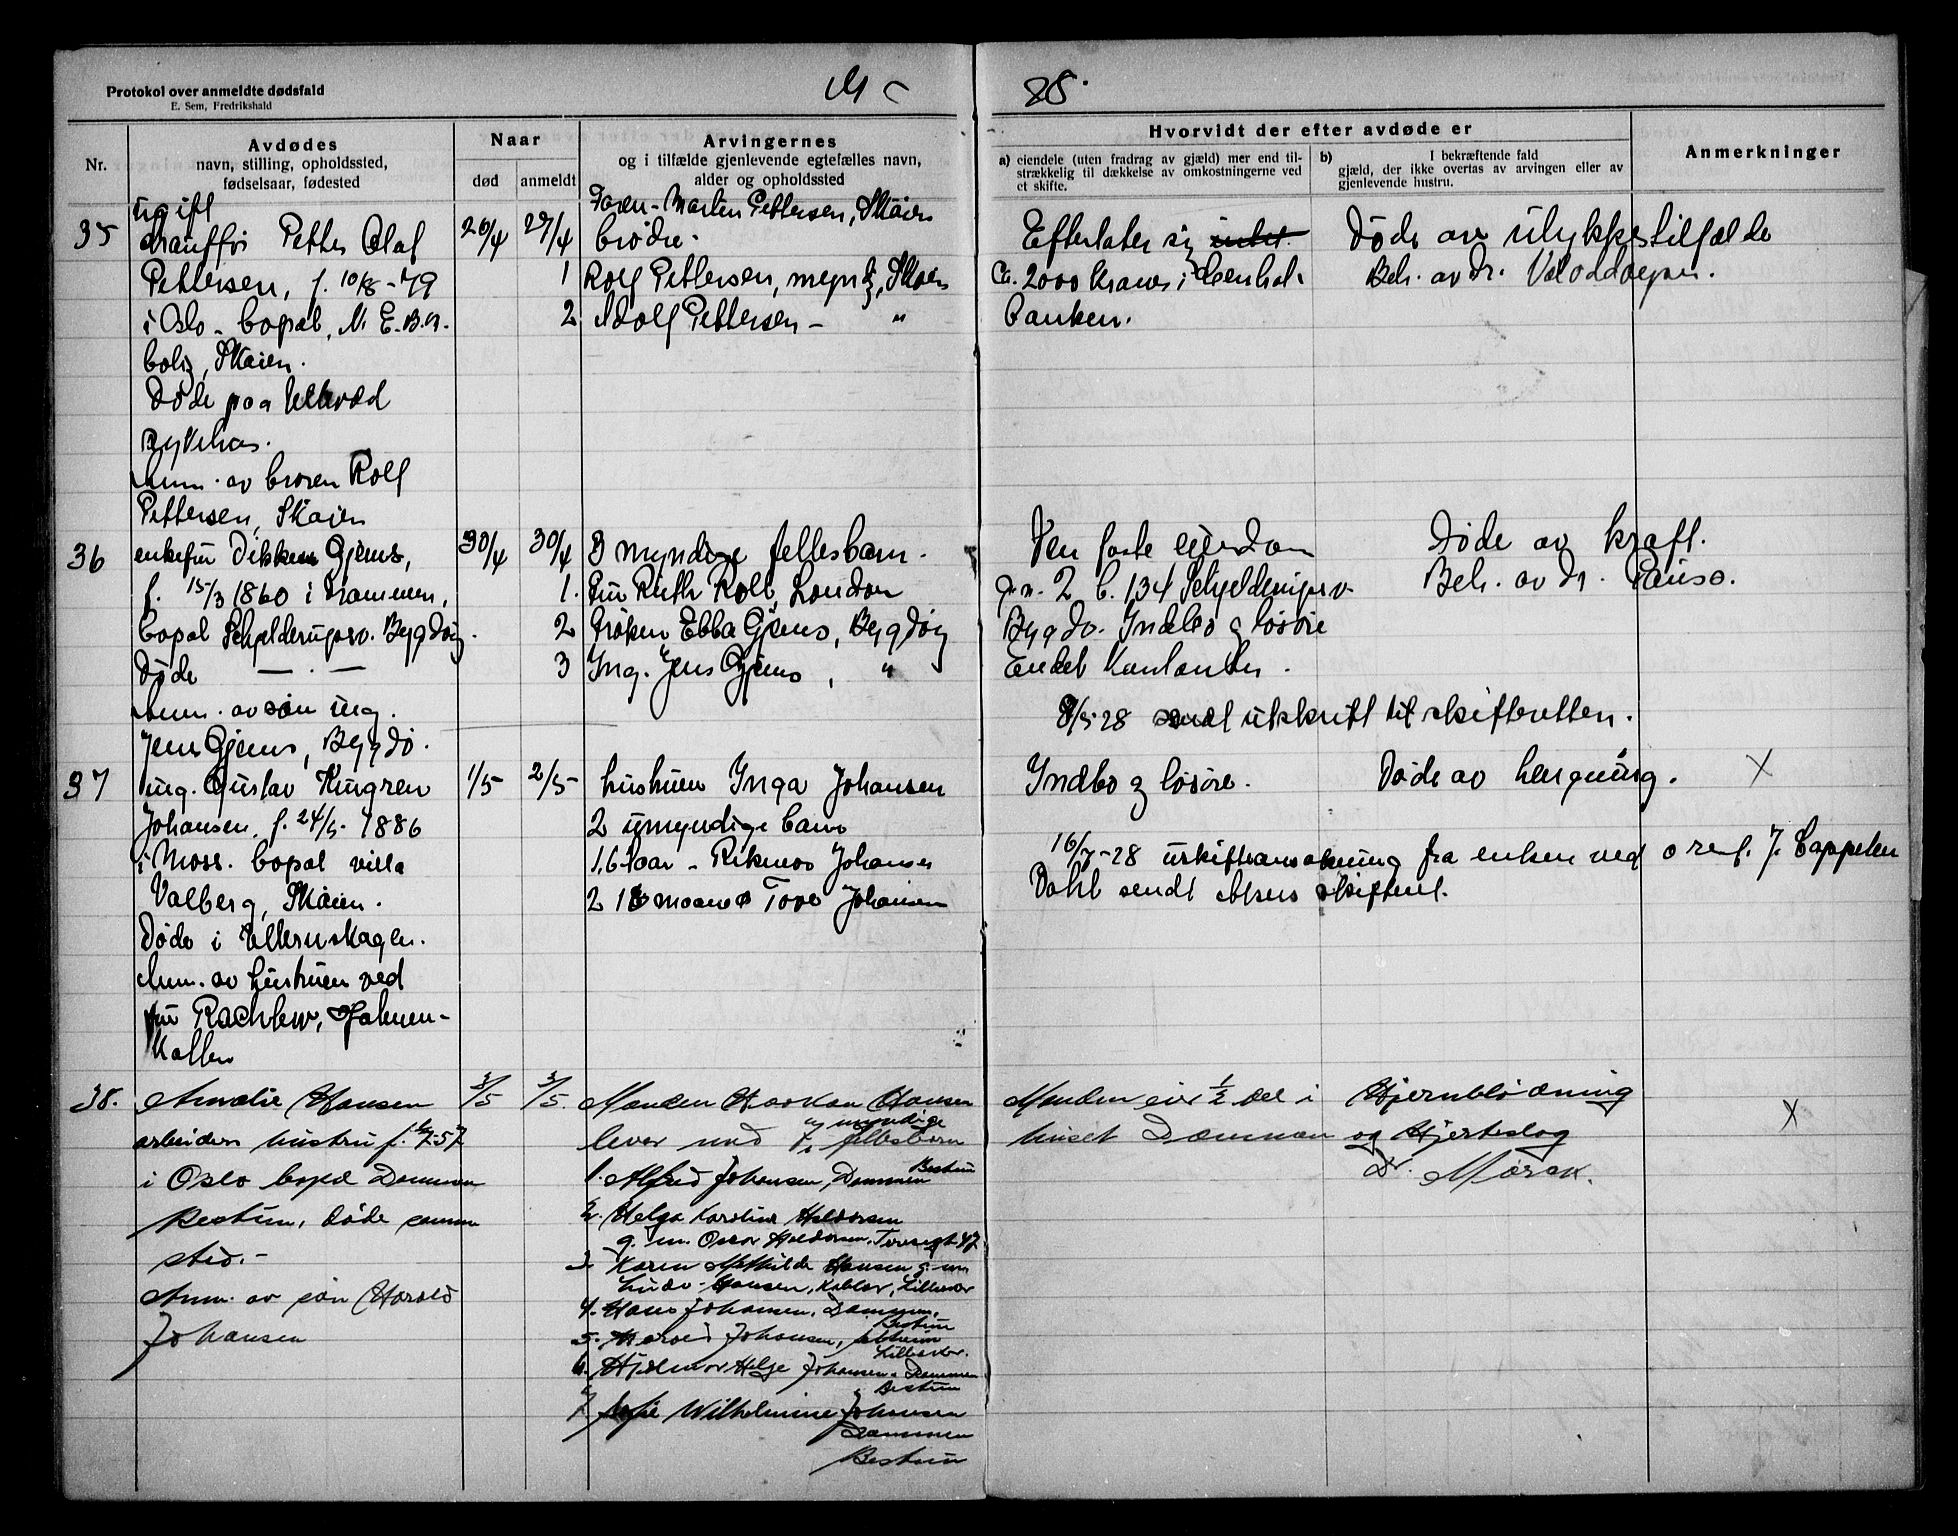 Protokol over anmeldte dødsfald
E. Sem, Fredrikshald
28.
Nr.
Avdødes
navn, stilling, opholdssted,
fødselsaar, fødested
Naar
død
anmeldt
Arvingernes
og i tilfælde gjenlevende egtefælles navn,
alder og opholdssted
Hvorvidt der efter avdøde er
a) eiendele (uten fradrag av gjæld) mer end til-
strækkelig til dækkelse av omkostningerne ved
et skifte.
b) I bekræftende fald
gjæld, der ikke overtas av arvingen eller av
gjenlevende hustru.
Anmerkninger
35
ugift
Petter Olaf
Pettersen, f. 10/8-79
i Oslo - bopæl, N. E. B. A.
bolig, Skøien.
Døde paa Ullevaal
sykehus.
Anm. av broren Rolf
Pettersen, Skøien
26/4
27/4
Faren - Martin Pettersen, Skøien
brødre -
1 Rolf Pettersen, myndig, Skøien
2 Adolf Pettersen - "
Efterlater sig intet.
Ca. 2000 kroner i Central-
banken.
Døde av ulykkestilfælde
Beh. av dr.
36
enkefru Dikken Gjems,
f. 15/3 1860 i Drammen,
bopæl Schjelderupsv. Bygdøy.
Døde — . —
Anm. av søn ing.
Jens Gjems, Bygdø.
30/4
30/4
3 myndige fellesbarn.
1. fru Ruth Roll, London
2 frøken Ebba Gjems, Bygdøy
3 Ing. Jens Gjems, "
Den faste eiendom
g.n. 2 b. 134 Schjelderupsv.
Bygdø. Indbo og løsøre
Endel kontanter.
Døde av kræft.
Beh. av dr. Paus.
8/5 28 sendt utskrift til skifteretten.
37
ing. Gustav Kungren
Johansen, f. 24/5. 1886
i Moss. bopæl villa
Valberg, Skøien.
Døde i Ullernskogen.
Anm. av hustruen ved
fru Rachlew, Holmen-
kollen
1/5
2/5
hustruen Inga Johansen
2 umyndige barn
1, 6 aar - Rikmor Johansen
2 18 maaneder Tove Johansen
Indbo og løsøre.
Døde av hengning.
X
16/7-28 uskifteansøkning fra enken ved o.r.sf. J. Cappelen
Dahl sendt Akers skifterett.
38.
Amalie Hansen
arbeiders hustru f. 57
i Oslo bopæl Dammen
Bestum, døde samme
sted. -
Anm. av søn Harald
Johansen
3/5
3/5.
Manden Haakon Hansen
lever med 7 myndige fellesbarn
1. Alfred Johansen, Dammen Bestum
2. Helga Karoline Haldorsen
g. m. Oscar Haldorsen,
3 Karen Mathilde Hansen g. m.
Ludv. Hansen, Lilleaker
4. Hans Johansen, Dammen,
Bestum
5. Harald Johansen,
Lilleaker.
6. Hjalmar Helge Johansen Dammen
Bestum
7 Wilhelmine Johansen
Dammen
Bestum
Manden eier 1/2 del i
huset Dammen
Hjernblødning
og Hjerteslag
Dr. Mørch.
X